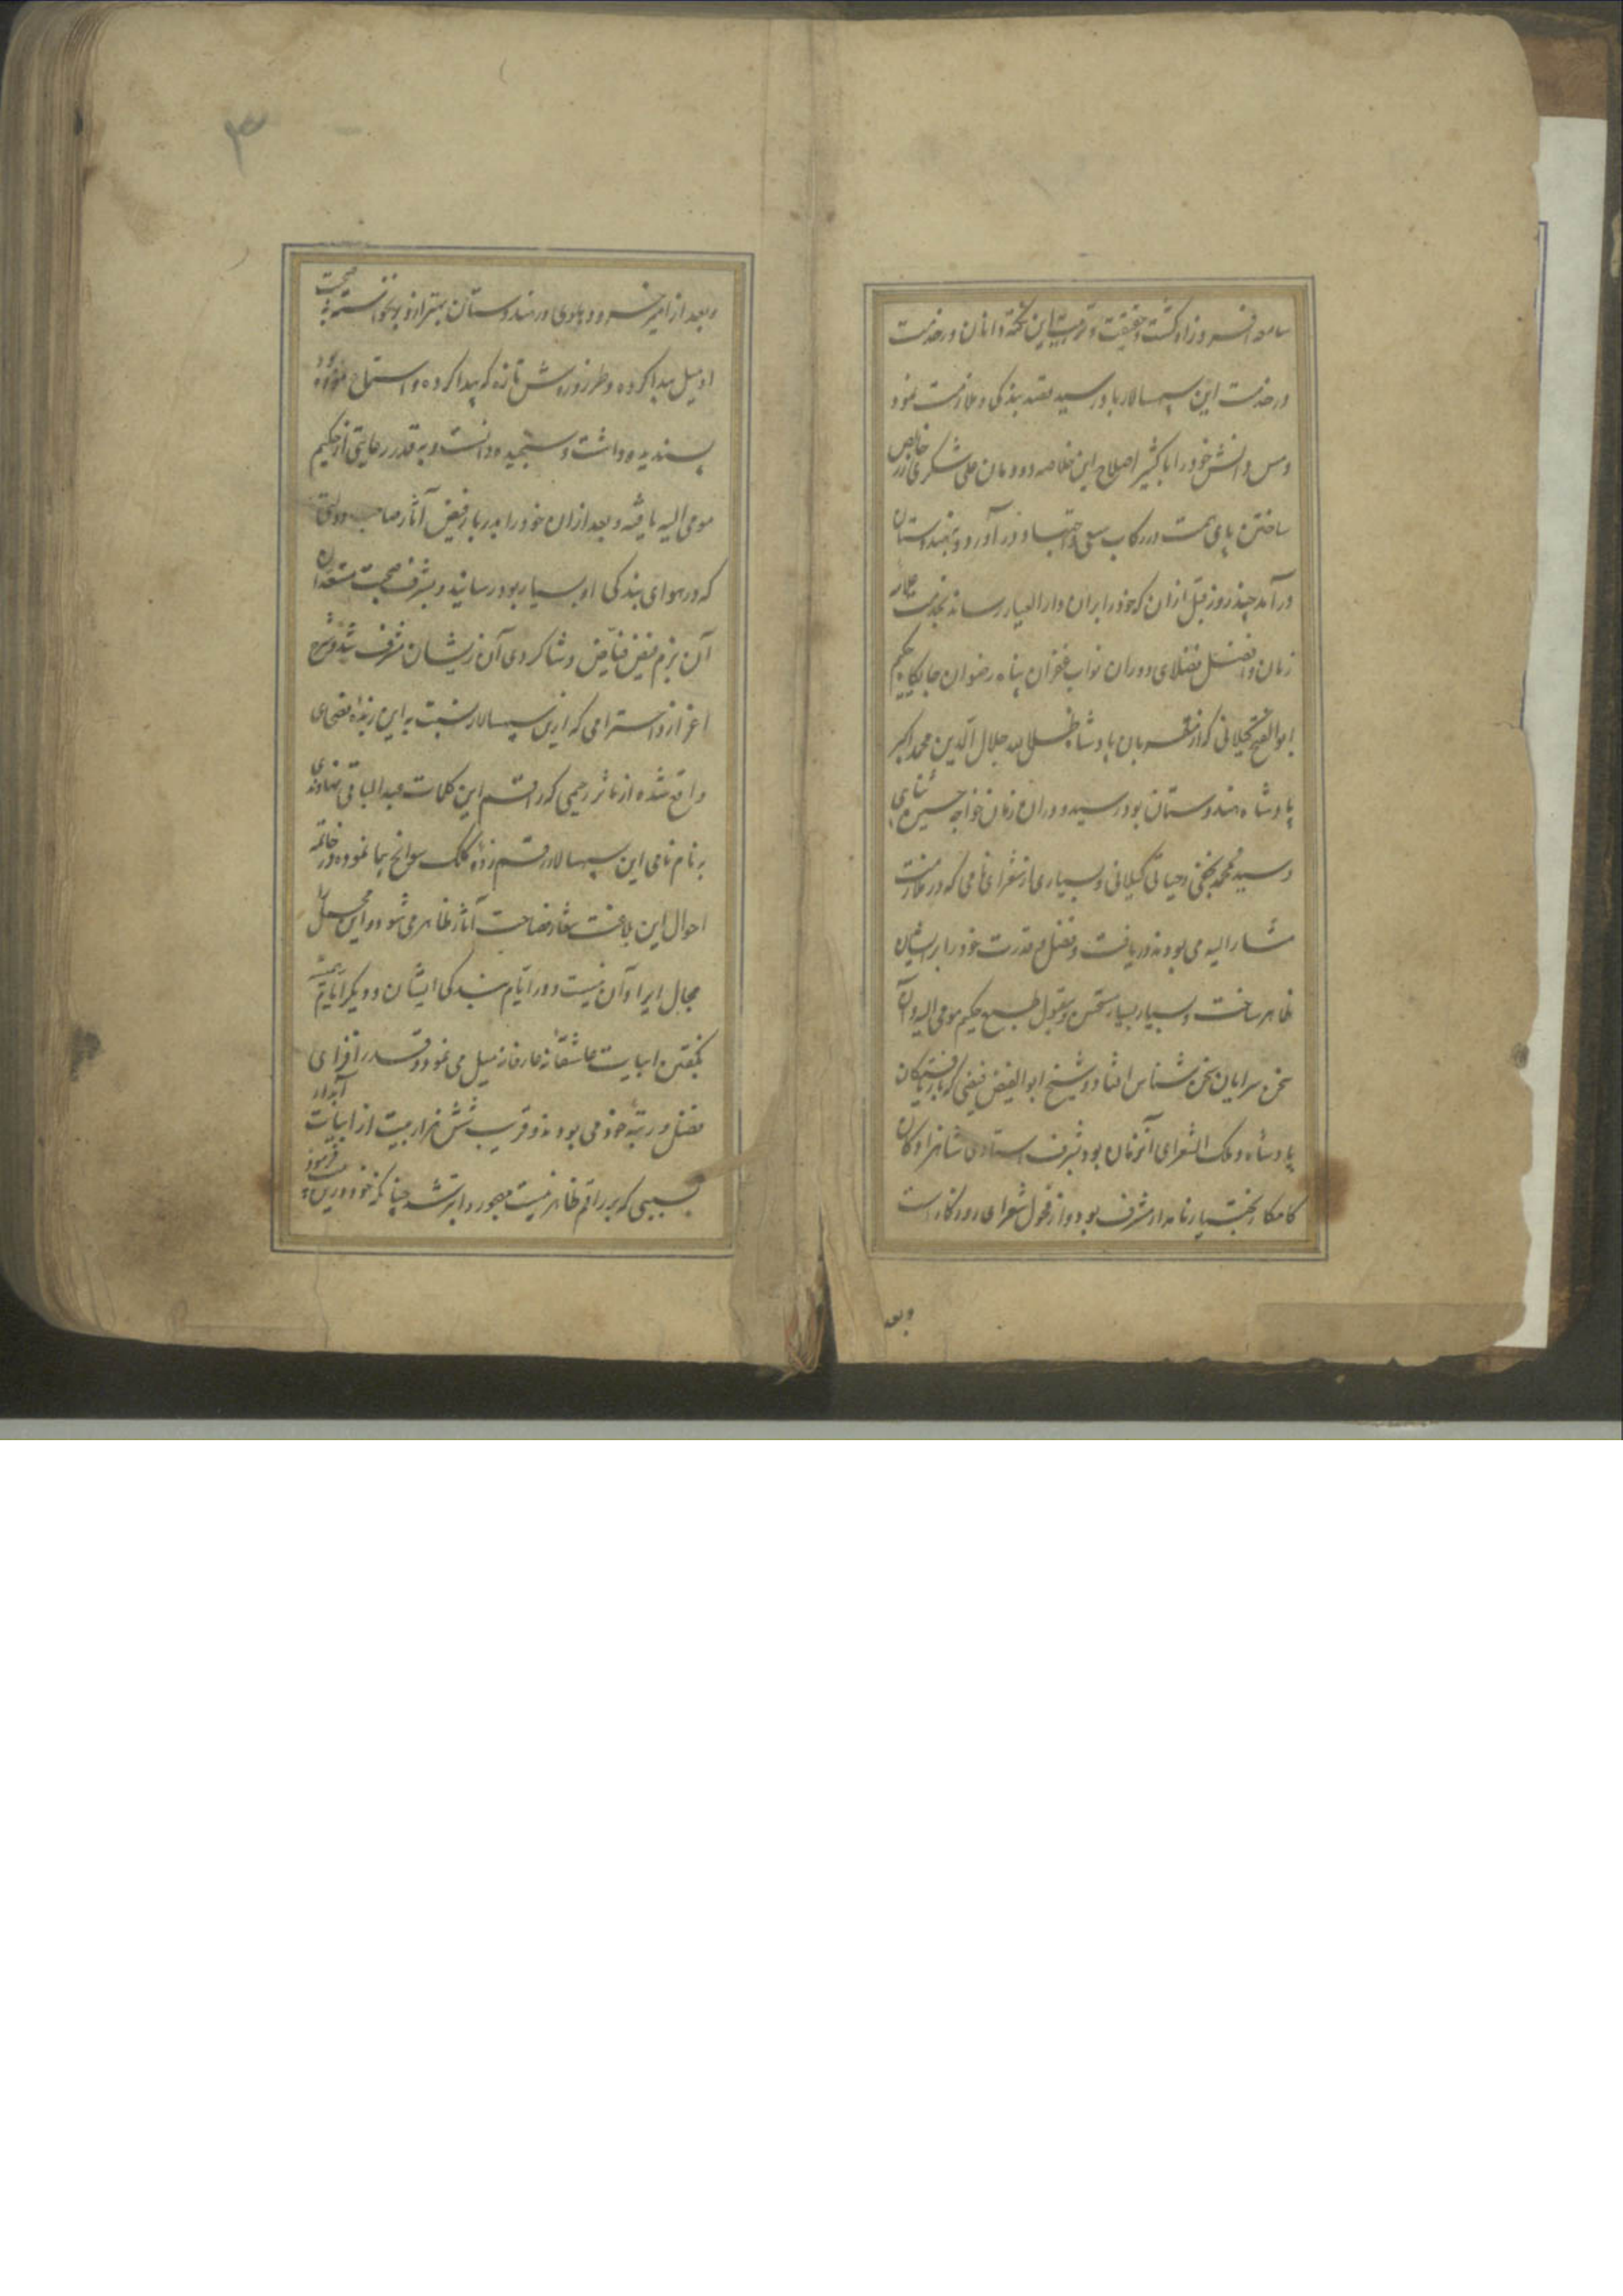 سامعه افروز او گشت و حقیقت و تربیت این نکته دانان در خدمت
در خدمت این سپهسالار باو رسید بقصد بندگی و ملازمت نمود
و مس دانش خود را باکثیر اصلاح این خلاصه دودمان علی شکری زر خالص
ساختن پای همت در رکاب سعی و اجتهاد در آورد و بهندوستان
در آمد چند روز قبل ازان که خود را بدان دار العیار رساند بخدمت
زمان و افضل فضلای دوران نواب غفران پناه رضوان جایگاه حکیم
ابوالفتح گیلانی که از مقربان پادشاه ظل الله جلال الدین محمد اکبر
پادشاه هندوستان بود رسید و دران زمان خواجه حسین ثنایی
و سید محمد نجفی و حیاتی گیلانی و بسیاری از شعرای نامی که در ملازمت
مشار الیه می بودند دریافت و فضل و قدرت خود را بر ایشان
ظاهر ساخت و بسیار بسیار مستحسن و مقبول طبع حکیم مومی الیه و آن
سخن سرایان سخن شناس افتاد و شیخ ابوالفیض فیضی که از یافتگان
پادشاه و ملک الشعرای آنزمان بود و بشرف استادی شاهزادگان
کامکار بختیار نامدار مشرف بود و از فحول شعرای روزگار است
وبعد
۳
و بعد از امیر خسرو دهلوی در هندوستان بهتر ازو برنخواسته به صحبت
او میل پیدا کرده و طرز و روش تازه که پیدا کرده و استماع نموده بود
پسندیده داشت و سنجیده دانست و به قدر رعایتی از حکیم
مومی الیه یافته و بعد ازان خود را بدربار فیض آثار صاحب
که در هوای بندگی او بسیار بود رسانید و بشرف صحبت مستعدان
آن بزم فیض فیاض و شاگردی آن زیشان مشرف شد و شرح
اعزاز و احترامی که ازین سپهسالار نسبت به این زبدهٔ فصحای
واقع شده از مآثر رحیمی که راقم این کلمات عبد الباقی نهاوندی
به نام نامی این سپهسالار رقم زدهٔ کلک سوانح پیما نموده در خاتمه
احوال این بلاغت شعار فصاحت آثار ظاهر می شود و این محل
مجال ایراد آن نیست و در ایام بندگی ایشان و دیگر ایام
بگفتن ابیات عاشقانه عارفانه میل می نمود و قدر افزای
فضل و رتبه خود می بودند و قریب شش هزار بیت از ابیات آبدار
بسببی که بر راقم ظاهر نیست مهجور و ابتر شد چنانکه خود درین فرموده